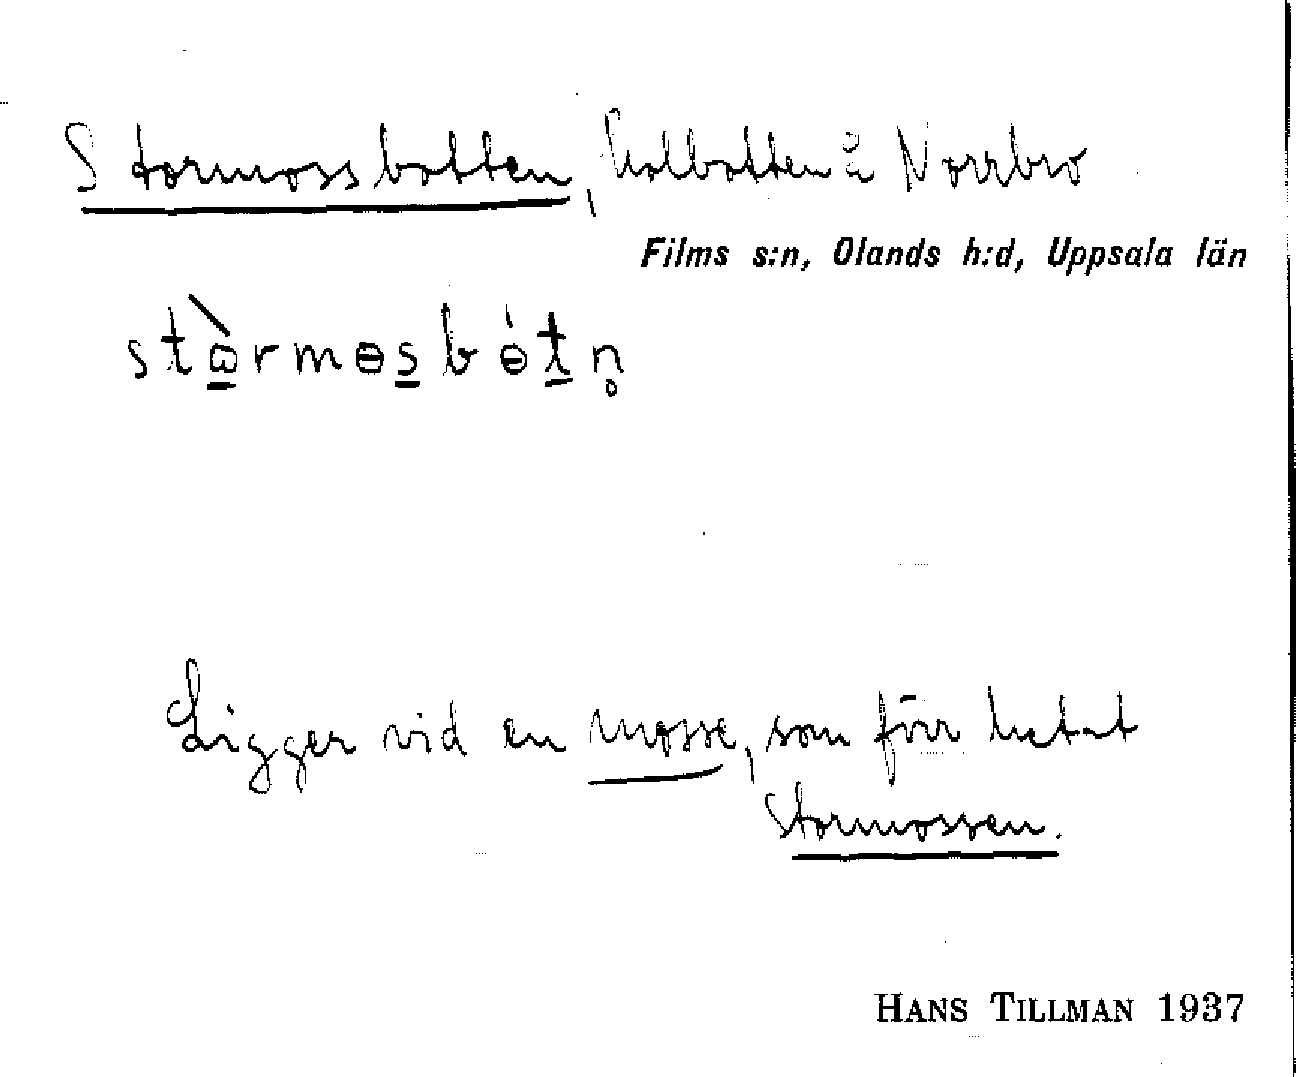 Stormossbotten, kolbotten å Norrbro
Films s:n, Olands h:d, Uppsala län
stɷ̀rmɵsbɵ́tn̥
Ligger vid en mosse, som förr hetat
Stormossen.
HANS TILLMAN 1937